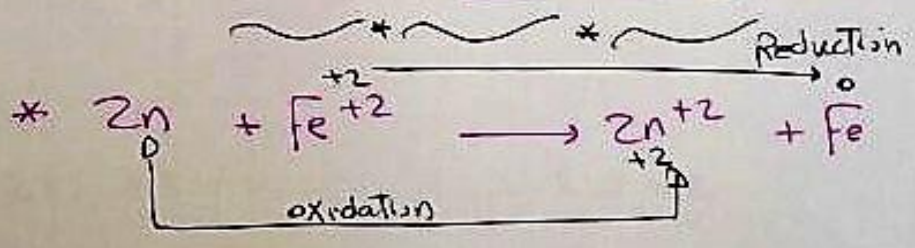 * *
Reduction
+2 0
* Zn + Fe+2 → Zn+2 + Fe
0 +2
oxidation